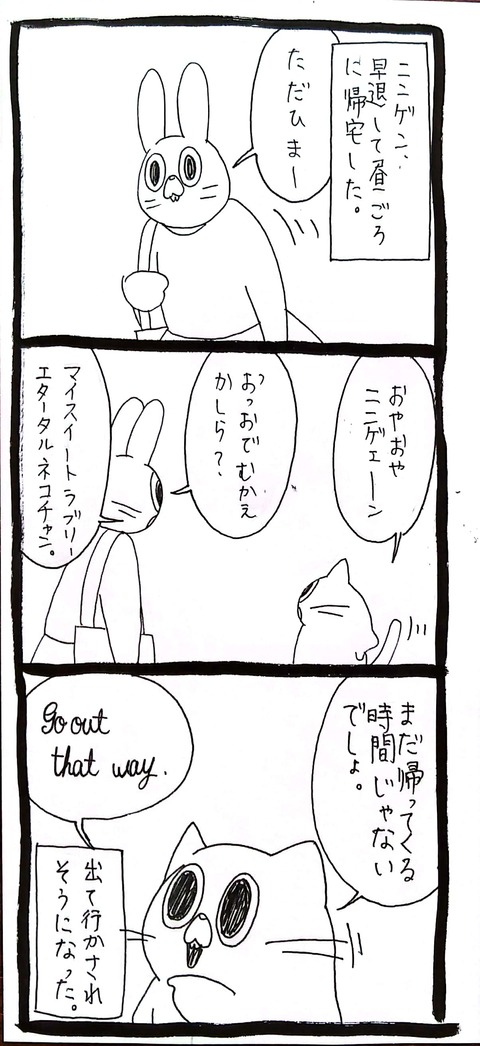 ニンゲン、
早退して昼ごろ
に帰宅した。
ただひまー
おやおや
ニンゲェーン
おっおでむかえ
かしら？
マイスイートラブリー
エタータルネコチャン。
まだ帰ってくる
時間じゃない
でしょ。
Go out
that way.
出て行かされ
そうになった。